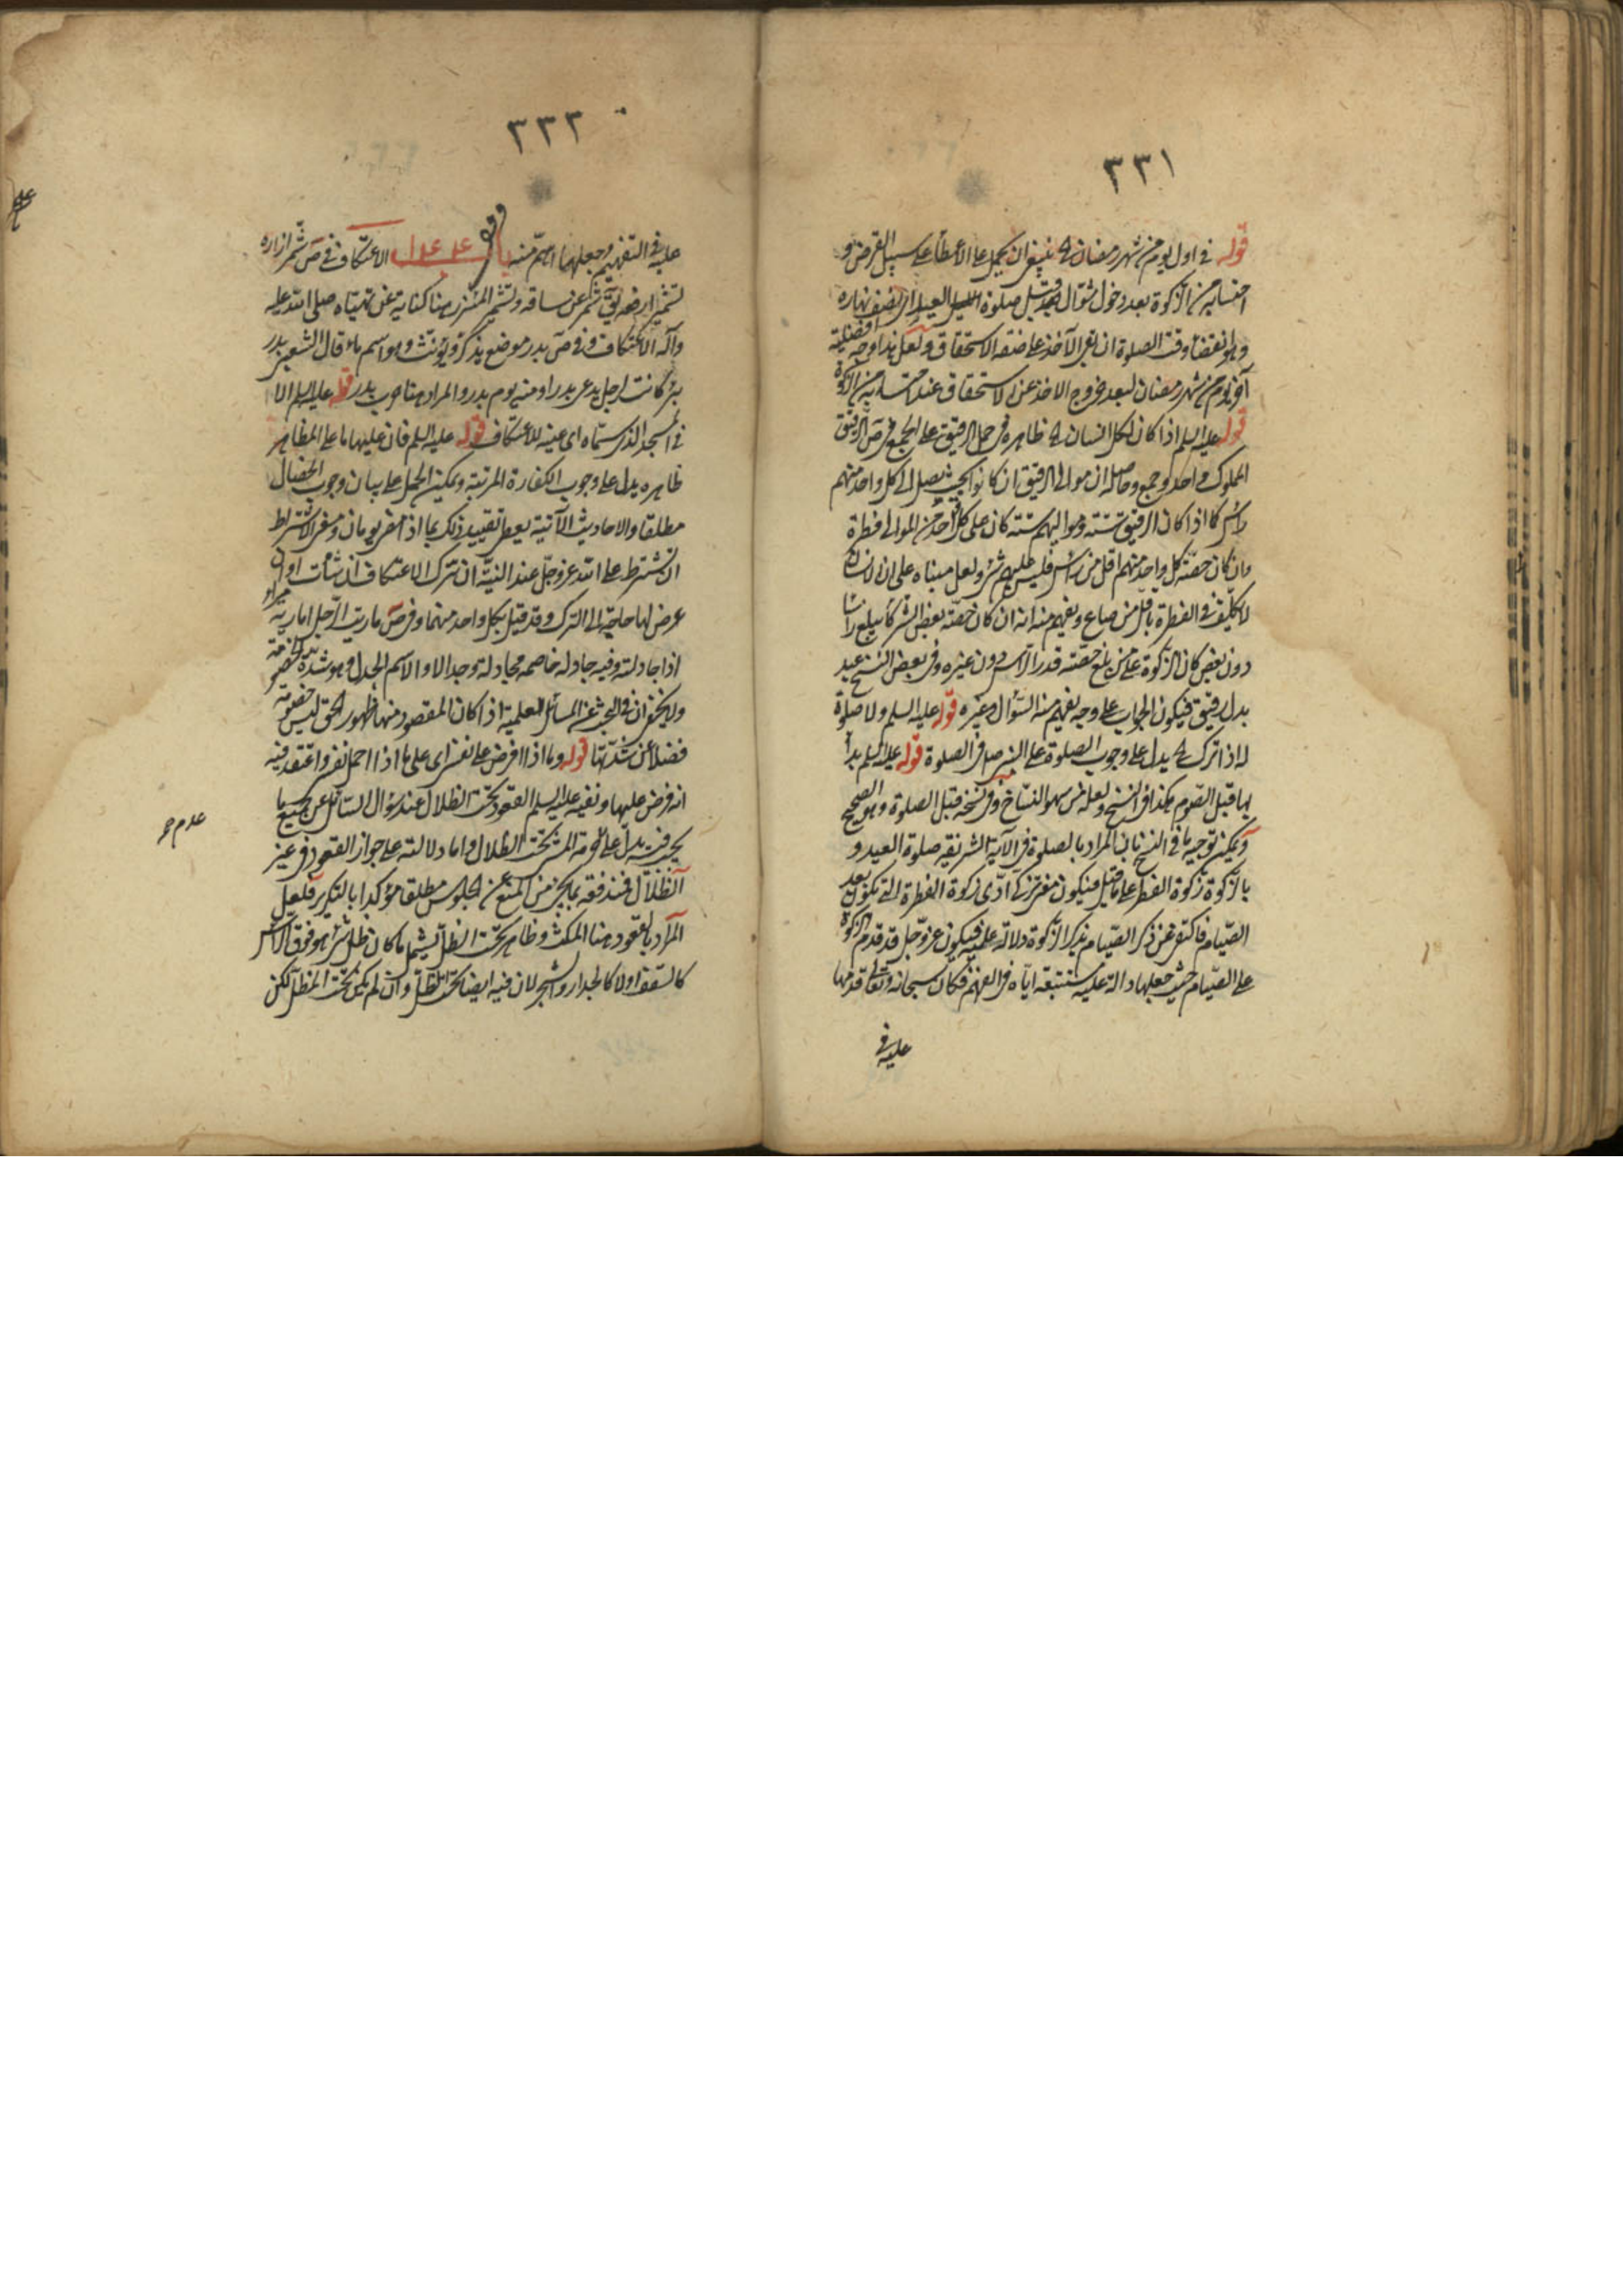 ٣٣١
قوله في اول يوم من شهر رمضان الخ ينبغي ان يحمل على الاعطاء على سبيل القرض و
احتسابه من الزكوة بعد دخول شوال قبل صلوة العيد الى نصف نهاره
وهو انقضاء وقت الصلوة ان بقي الآخذ على صفة الاستحقاق ولعل هذا وجه افضلية
آخر يوم من شهر رمضان لبعد خروج الاخذ عن الاستحقاق عند احتسابه من الزكوة
قوله عليه السلم اذا كان لكل انسان الخ ظاهره في حمل الرقيق على الجمع في ص الرقيق
المملوك واحد وجمع وحاصله ان موالى الرقيق ان كانوا بحيث يصل الى كل واحد منهم
راس كما اذا كان الرقيق ستة ومواليهم ستة كان على كل واحد من الموالى فطرة
وان كان حصة كل واحد منهم اقل من راس فليس عليهم شئ ولعل مبناه على ان الانسان
لا يكلف في الفطرة باقل من صاع ويفهم منه انه ان كان حصة بعض الشركاء يبلغ راسا
دون بعض كان الزكوة على من بلغ حصته قدر الراس دون غيره وفي بعض النسخ عبد
بدل رقيق فيكون الجواب على وجه يفهم منه السؤال وغيره قوله عليه السلم ولا صلوة
له اذا ترك الخ يدل على وجوب الصلوة على النبي ص في الصلوة قوله عليه السلم بدأ
بها قبل الصوم هكذا في النسخ ولعله من سهو النساخ وفي نسخة قبل الصلوة وهو الصحيح
ويمكن توجيه ما في النسخ بان المراد بالصلوة في الآية الشريفة صلوة العيد و
بالزكوة زكوة الفطر على ما قيل فيكون من تزكى ادى زكوة الفطرة التي تكون بعد
الصيام فاكتفى عن ذكر الصيام بذكر الزكوة دلالة عليه فيكون عز وجل قد قدم الزكوة
على الصيام حيث جعلها دالة عليه مستتبعة اياه في الفهم فكان سبحانه وتعالى قدمها
عليه في
٣٣٢
عليه في التفهيم وجعلها اهم منه الاعتكاف في ص شمر ازاره
تشميرا رفعه يق شمر عن ساقه وتشمير المئزر هنا كناية عن تهيئاه صلى الله عليه
وآله الاعتكاف وفي ص بدر موضع يذكر ويؤنث وهو اسم ماء قال الشعبي بدر
بئر كانت لرجل يدعى بدرا ومنه يوم بدر والمراد هنا حرب بدر قوله عليه السلم الا
في المسجد الذي سماه اى عينه للاعتكاف قوله عليه السلم فان عليها ما على المظاهر
ظاهره يدل على وجوب الكفارة المرتبة ويمكن الحمل على بيان وجوب الخصال
مطلقا والاحاديث الآتية يعطى تقييد ذلك بما اذا مضى يومان ومعنى الاشتراط
ان تشترط على الله عز وجل عند النية ان تترك الاعتكاف ان شاءت او ان
عرض لها حاجة الى الترك وقد قيل بكل واحد منهما وفي ص ماريت الرجل اماريه مراء
اذا جادلته وفيه جادله خاصمه مجادلة وجدالا والاسم الجدل وهو شدة الخصومة
ولا يخفى ان في البحث عن المسائل العلمية اذا كان المقصود منها ظهور الحق ليس خصومة
فضلا عن شدتها قوله وما ذا افرض على نفسى اى على ما اذا احمل نفسى واعتقد فيه
انه فرض عليها ونفيه عليه السلم القعود تحت الظلال عند سؤال السائل عن جميع ما
يجب فيه يدل على حرمة المشى تحت الظلال واما دلالته على جواز القعود في غير
الظلال فندفعه بما يجئ من المنع عن الجلوس مطلقا مؤكدا بالتكرير فلعل
المراد بالقعود هنا المكث وظاهر تحت الظل يشمل ما كان ظل شئ هو فوق الراس
كالسقف اولا كالجدار والشجر لان فيه ايضا تحت الظل وان لم يكن تحت المظل لكن